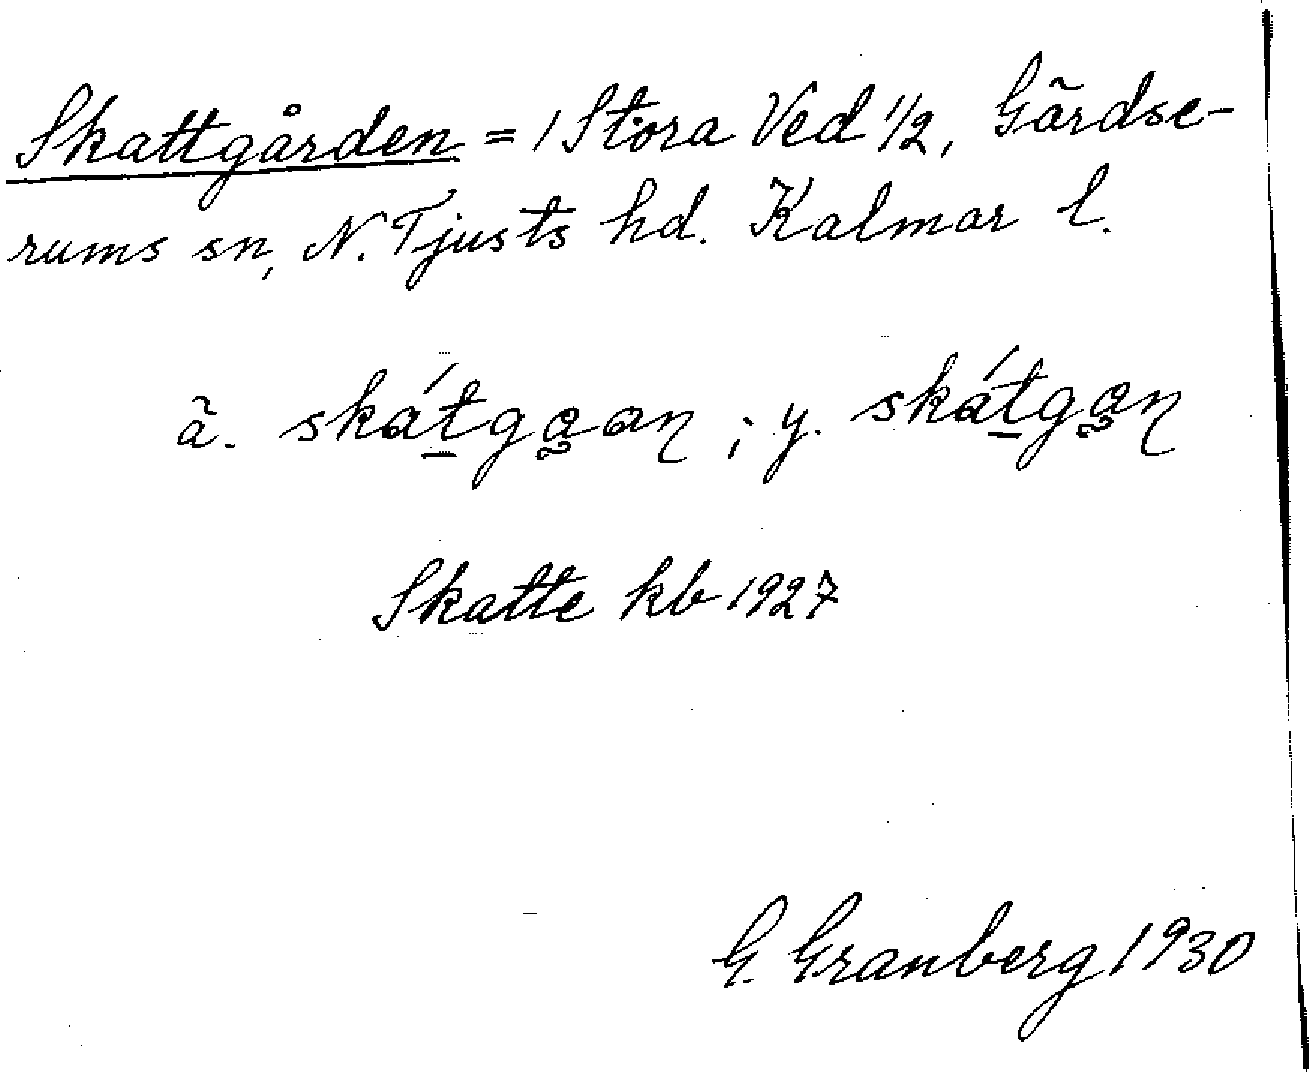 Skattgården = 1 Stora Ved 1/2, Gärdse-
rums sn, N. Tjusts hd. Kalmar l.
ä. skátgaan ; y. skátgan
Skatte kb 1927
G. Granberg 1930